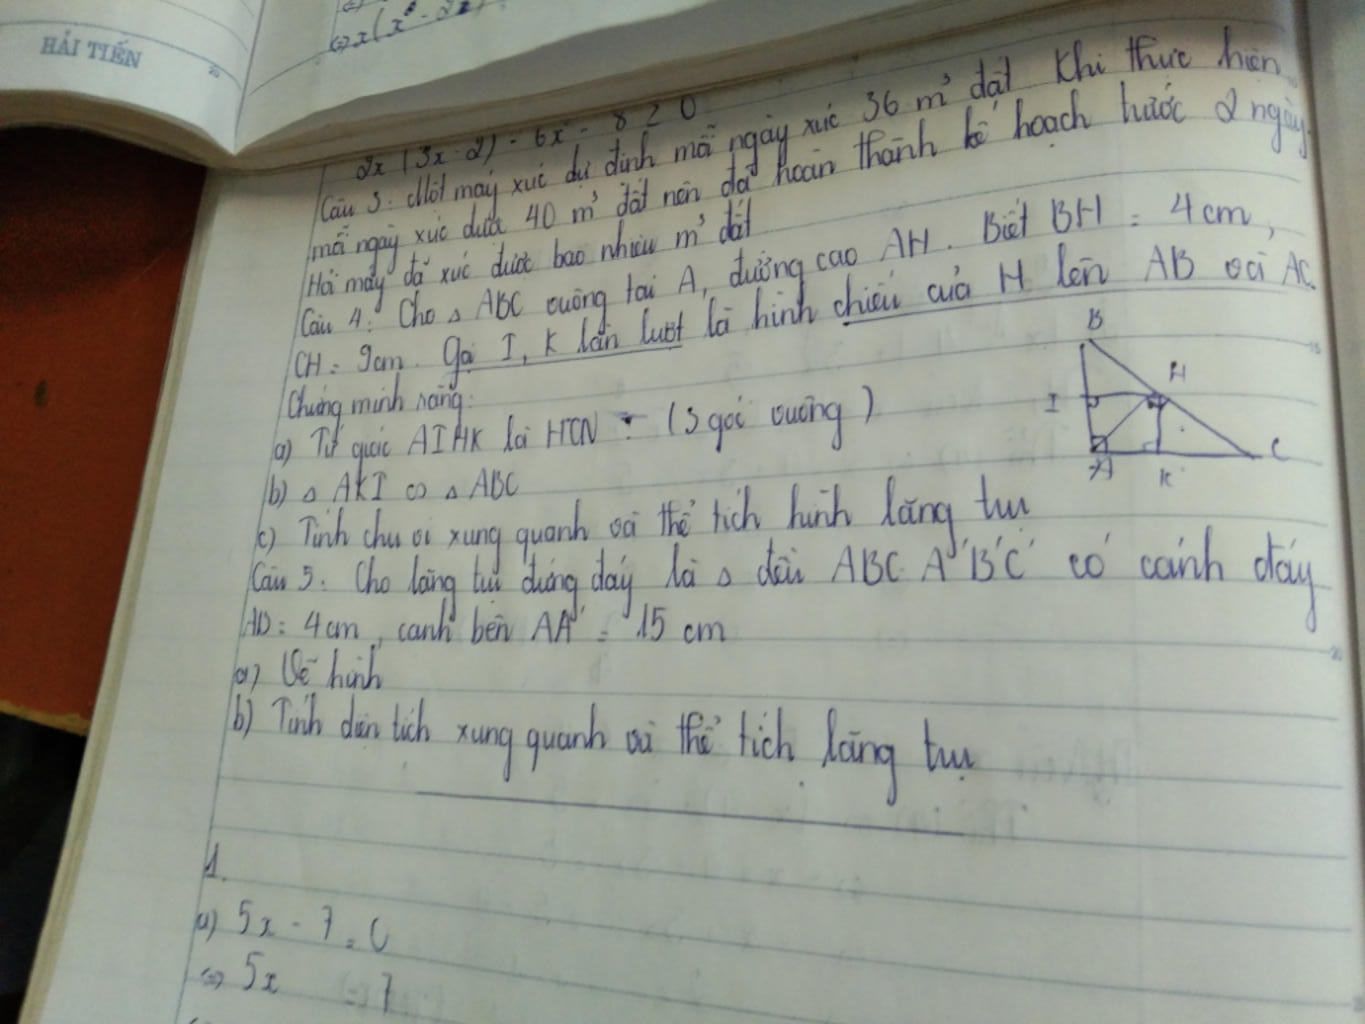 ⇔ x(x² - 2x)
HẢI TIẾN
2x (3x - 2) - 6x² - 8 ≥ 0
Câu 3: Một máy xúc dự định mỗi ngày xúc 36 m³ đất Khi thực hiện
mỗi ngày xúc được 40 m³ đất nên đã hoàn thành kế hoạch trước 2 ngày
Hỏi máy đã xúc được bao nhiêu m³ đất
Câu 4: Cho △ ABC vuông tại A, đường cao AH. Biết BH = 4cm,
CH = 9cm. Gọi I, K lần lượt là hình chiếu của H lên AB và AC.
Chứng minh rằng:
a) Tứ giác AIHK là HCN - (3 góc vuông)
b) △ AKI ∽ △ ABC
c) Tính chu vi xung quanh và thể tích hình lăng trụ
Câu 5: Cho lăng trụ đứng đáy là △ đều ABC. A'B'C' có cánh đáy
AB = 4cm, canh bên AA' = 15 cm
a) Vẽ hình
b) Tính diện tích xung quanh và thể tích lăng trụ
B
H
I
A
K
C
1.
a) 5x - 7 = 0
⇔ 5x = 7